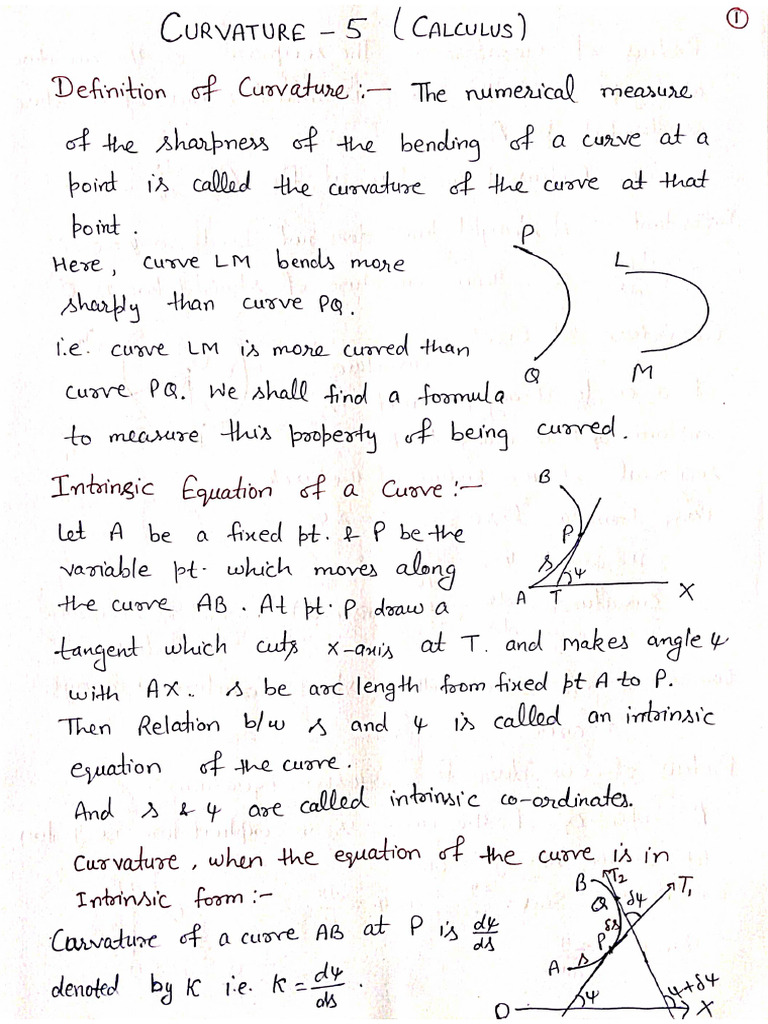 CURVATURE - 5 (CALCULUS)
1
Definition of Curvature :- The numerical measure
of the sharpness of the bending of a curve at a
point is called the curvature of the curve at that
point.
P
L
Here, curve LM bends more
sharply than curve PQ.
i.e. curve LM is more curved than
Q
M
curve PQ. We shall find a formula
to measure this property of being curved.
Intrinsic Equation of a Curve :-
B
P
s
ψ
A T X
Let A be a fixed pt. & P be the
variable pt. which moves along
the curve AB. At pt. P draw a
tangent which cuts x-axis at T. and makes angle ψ
with AX. s be arc length from fixed pt A to P.
Then Relation b/w s and ψ is called an intrinsic
equation of the curve.
And s & ψ are called intrinsic co-ordinates.
Curvature, when the equation of the curve is in
Intrinsic form :-
B T2 T1
Q δψ
δs
P
A s
O ψ ψ+δψ X
Carvature of a curve AB at P is dψ/ds
denoted by K i.e. K = dψ/ds.